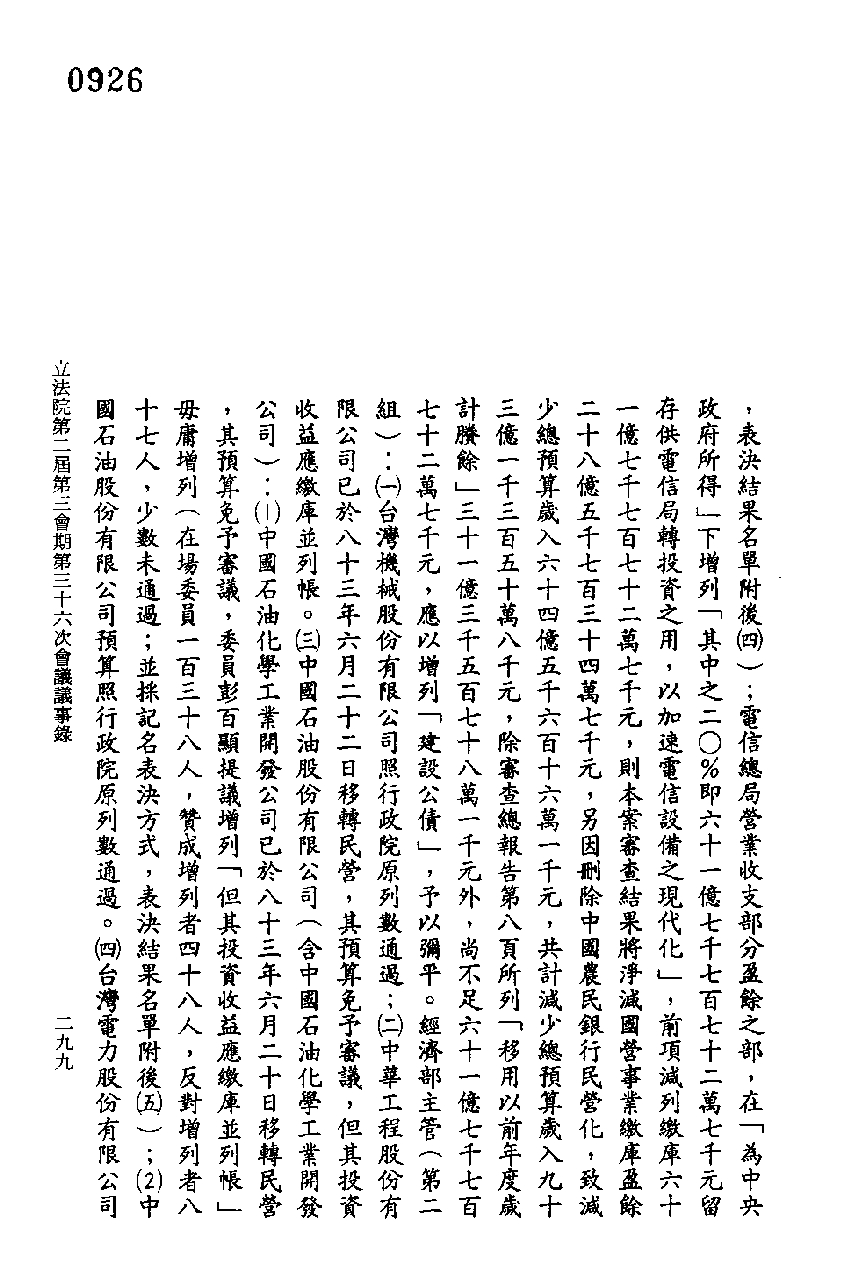 0926
，表決結果名單附後㈣）；電信總局營業收支部分盈餘之部，在「為中央
政府所得」下增列「其中之二○％即六十一億七千七百七十二萬七千元留
存供電信局轉投資之用，以加速電信設備之現代化」，前項減列繳庫六十
一億七千七百七十二萬七千元，則本案審查結果將淨減國營事業繳庫盈餘
二十八億五千七百三十四萬七千元，另因刪除中國農民銀行民營化，致減
少總預算歲入六十四億五千六百十六萬一千元，共計減少總預算歲入九十
三億一千三百五十萬八千元，除審查總報告第八頁所列「移用以前年度歲
計賸餘」三十一億三千五百七十八萬一千元外，尚不足六十一億七千七百
七十二萬七千元，應以增列「建設公債」，予以彌平。經濟部主管（第二
組）：㈠台灣機械股份有限公司照行政院原列數通過；㈡中華工程股份有
限公司已於八十三年六月二十二日移轉民營，其預算免予審議，但其投資
收益應繳庫並列帳。㈢中國石油股份有限公司（含中國石油化學工業開發
公司）：⑴中國石油化學工業開發公司已於八十三年六月二十日移轉民營
，其預算免予審議，委員彭百顯提議增列「但其投資收益應繳庫並列帳」
毋庸增列（在場委員一百三十八人，贊成增列者四十八人，反對增列者八
十七人，少數未通過；並採記名表決方式，表決結果名單附後㈤）；⑵中
國石油股份有限公司預算照行政院原列數通過。㈣台灣電力股份有限公司
立法院第二屆第三會期第三十六次會議議事錄
二九九